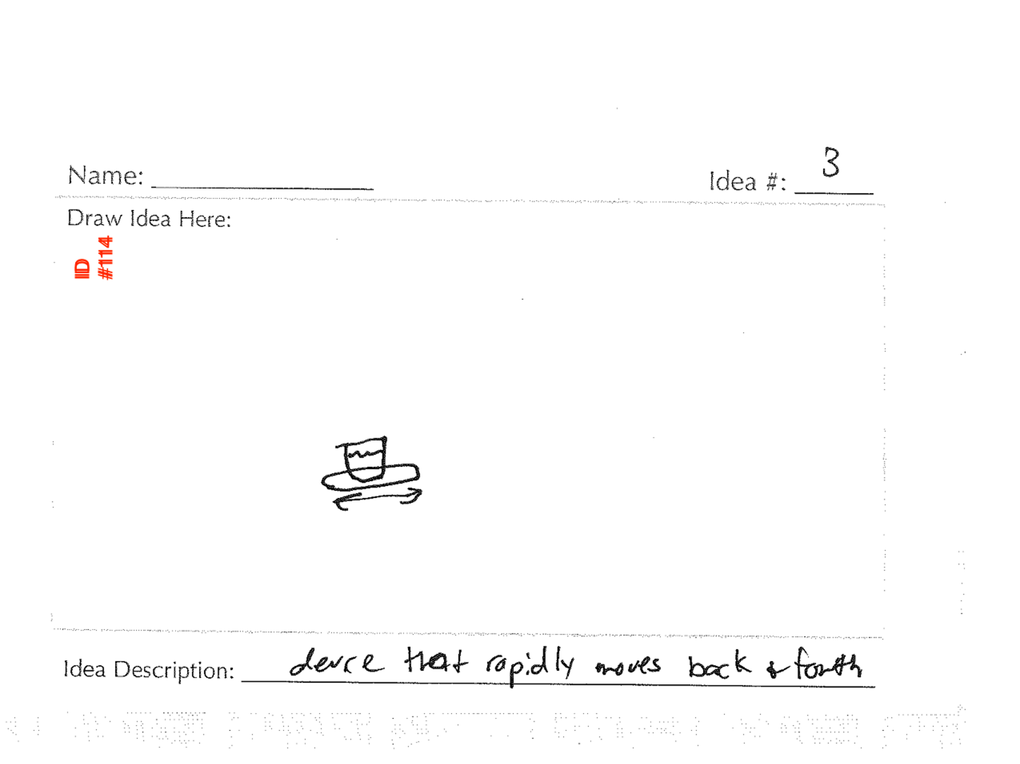 Name:
Idea #: 3
Draw Idea Here:
IID
#114
Idea Description: device that rapidly moves back & fourth